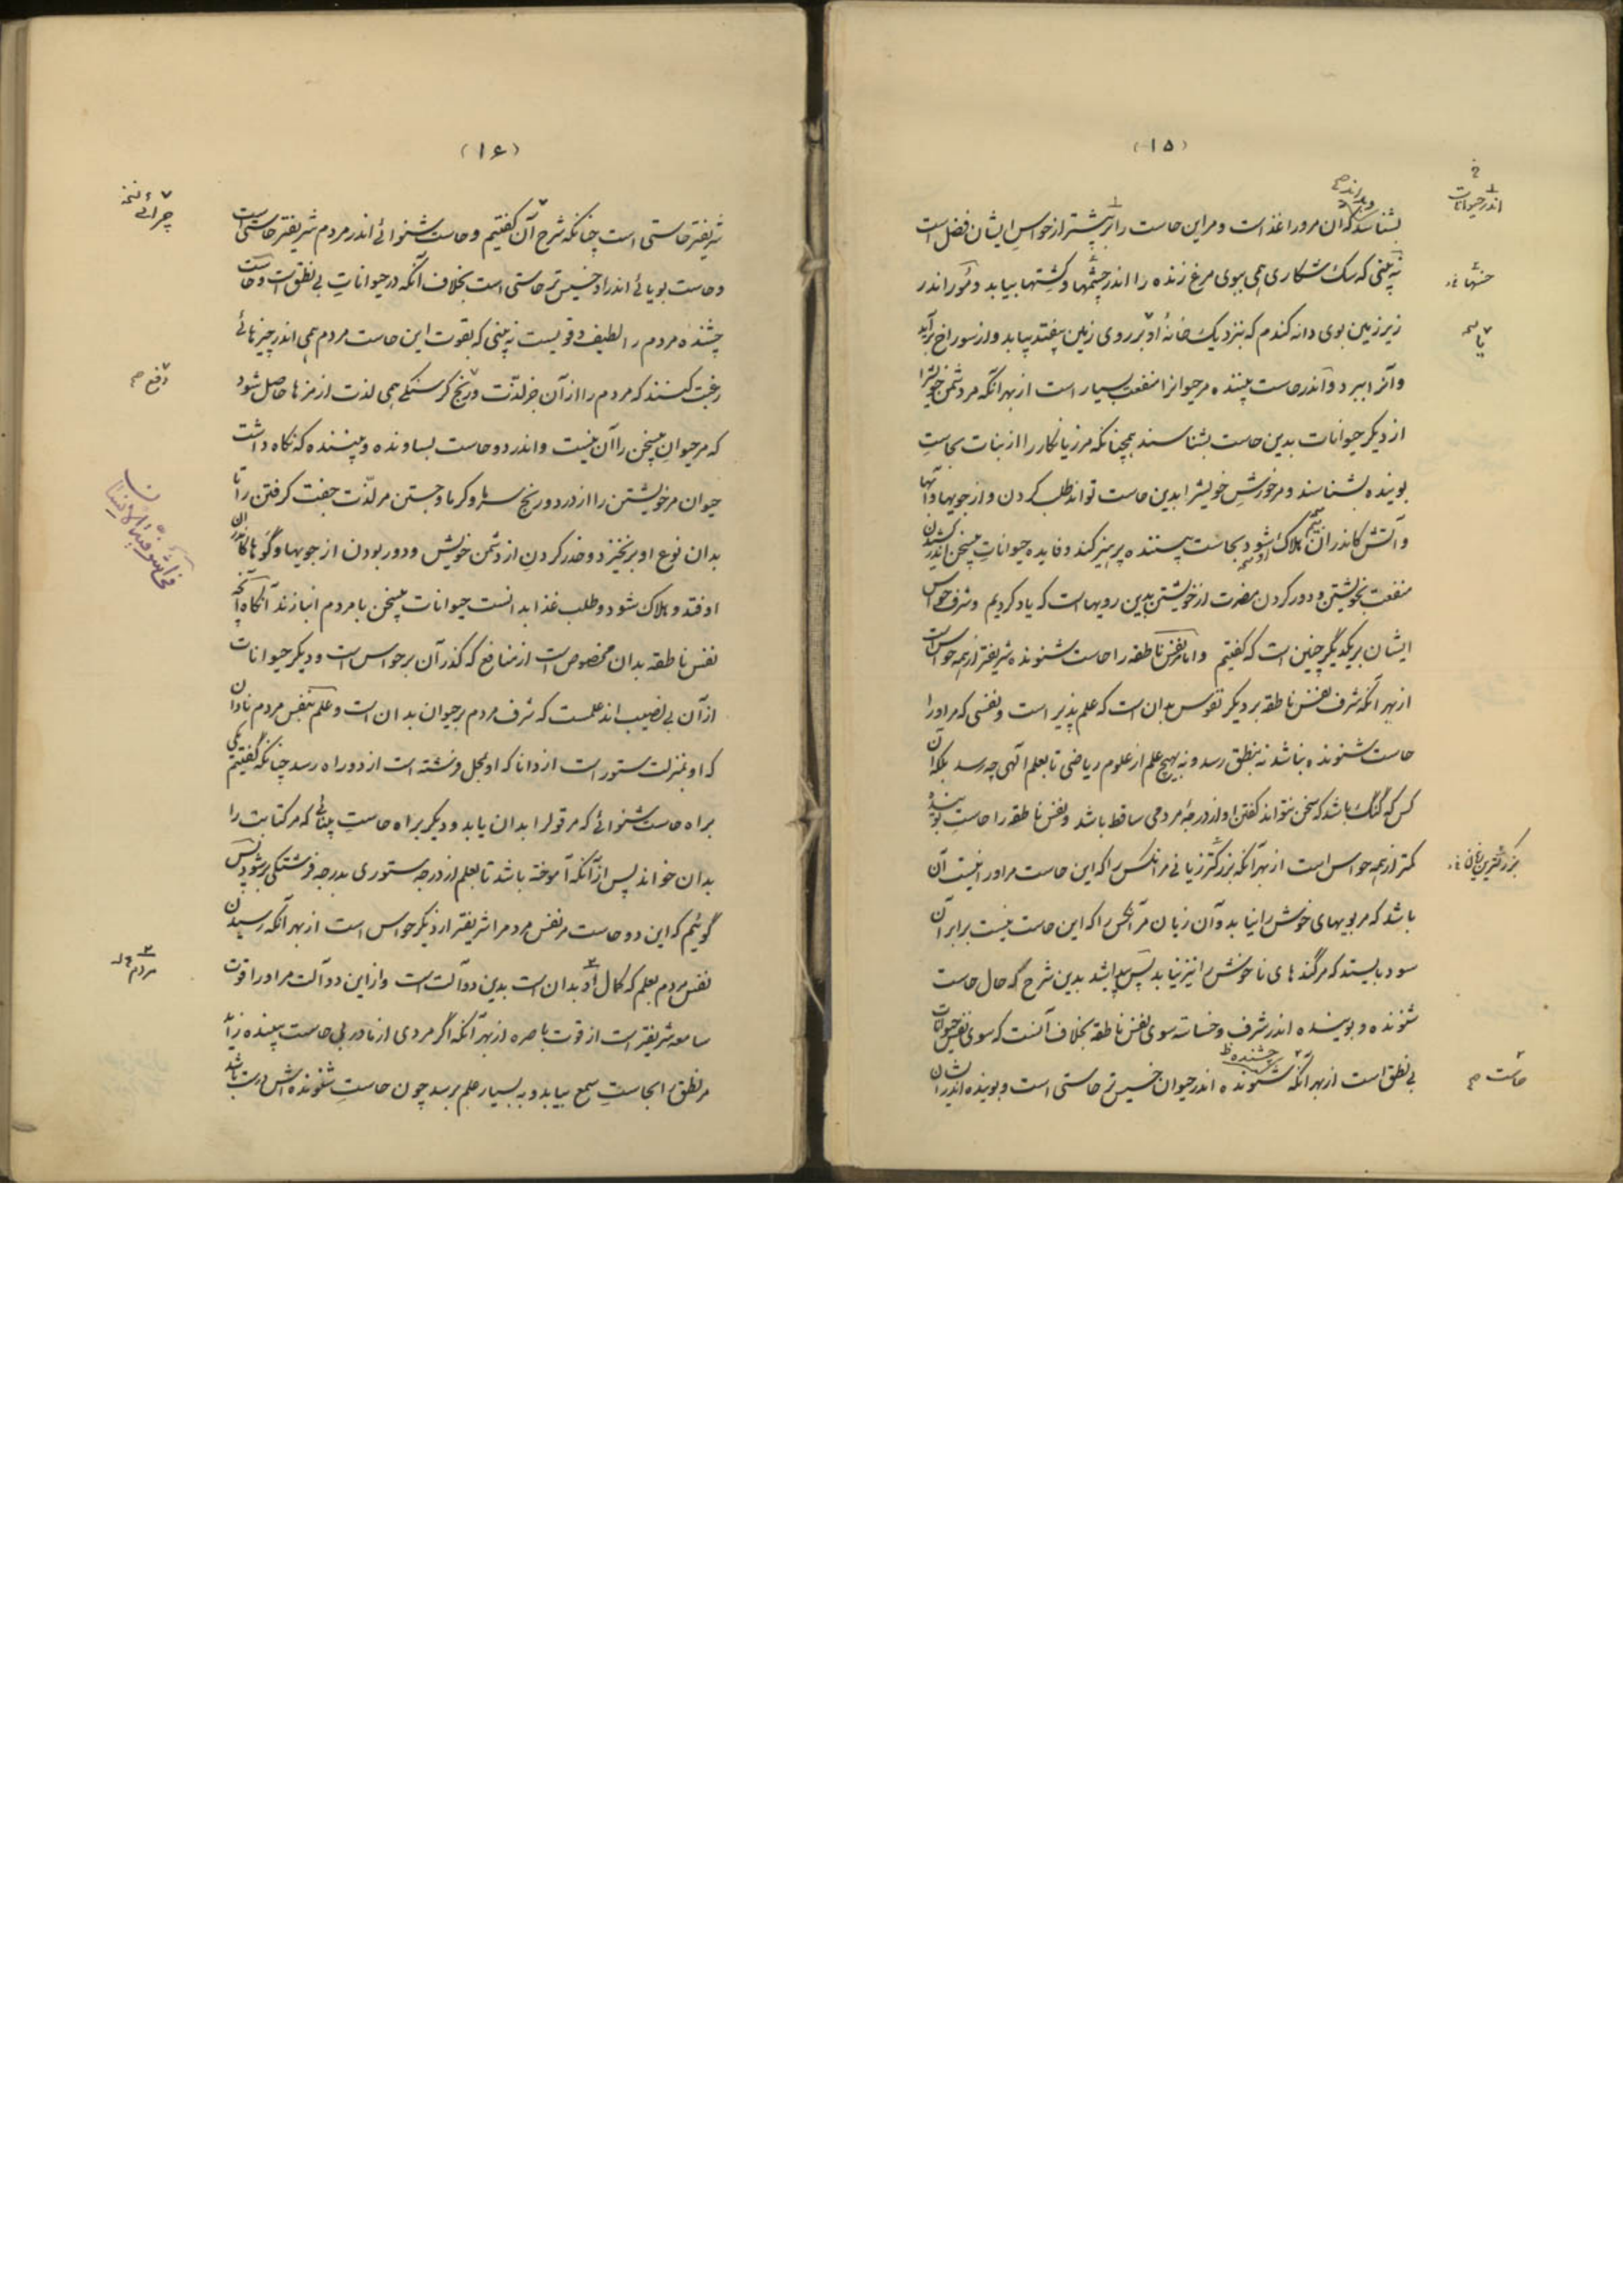 (۱۵)
بشناسد که آن مرورا غذاست و مر این حاست را اثر بیشتر از حواس ایشان فضل است
نه بینی که سگ شکاری همی ببوی مرغ زنده را اندر چشمها و کشتها بیابد و مور اندر
زیر زمین بوی دانه گندم که بنزدیک خانهٔ او بر روی زمین بیفتد بیابد و از سوراخ برآید
و آنرا ببرد و اندر حاست بیننده مر حیوانرا منفعت بسیار است از بهر آنکه مر دشمن خویشرا
از دیگر حیوانات بدین حاست بشناسند همچنانکه مر زیانکار را از نبات بحاست
بوینده بشناسند و مر خورش خویشرا بدین حاست تواند طلب کردن و از جویها و آبها
و آتش کاندر آن هلاک شود بحاست بیننده پرهیز کند و فایده حیوانات بیسخن اندر کشیدن
منفعت بخویشتن و دور کردن مضرت از خویشتن بدین رویهاست که یاد کردیم و شرف حواس
ایشان بر یکدیگر چنین است که گفتیم و اما مر نفس ناطقه را حاست شنونده شریفتر از همه حواس است
از بهر آنکه شرف نفس ناطقه بر دیگر نفوس بدان است که علم پذیر است و نفسی که مر اورا
حاست شنونده نباشد نه بنطق رسد و نه بهیچ علم از علوم ریاضی تا بعلم الهی چه رسد بلکه آن
کس که گنگ باشد که سخن نتواند گفتن او از درجهٔ مردمی ساقط باشد و نفس ناطقه را حاست بوینده
کمتر از همه حواس است از بهر آنکه بزرگتر زیانی مر آنکس را که این حاست مر اورا نیست آن
باشد که مر بویهای خوش را نیابد و آن زیان مر آنکس را که این حاست نیست برابر آن
سود بایستد که مر گندهای ناخوش را نیز نیابد پس پیدا شد بدین شرح که حال حاست
شنونده و بوینده اندر شرف و خساست سوی نفس ناطقه بخلاف آنست که سوی نفس حیوانات
بی نطق است از بهر آنکه شنونده اندر حیوان خسیس تر حاستی است و بوینده اندر ایشان
اندر حیوانات
بزرگترین زیان
حاست
چشنده
(۱۶)
شریفتر حاستی است چنانکه شرح آن گفتیم و حاست شنوائی اندر مردم شریفتر حاستی است
و حاست بویائی اندر او خسیس تر حاستی است بخلاف آنکه در حیوانات بی نطق است و حاست
چشنده مردم را لطیف و قویست نه بینی که بقوت این حاست مردم همی اندر چیزهائی
رغبت کنند که مردم را از آن جز لذّت و رنج گرسنگی همی لذت از مزها حاصل شود
که مر حیوان بیسخن را آن نیست و اندر دو حاست بساونده و بیننده که نگاه داشت
حیوان مر خویشتن را از درد و رنج سرما و گرما و جستن مر لذّت جفت گرفتن را تا
بدان نوع او برنخیزد و حذر کردن از دشمن خویش و دور بودن از جویها و گوها کاندران
اوفتد و هلاک شود و طلب غذا بدانست حیوانات بیسخن با مردم انبازند آنگاه آنچه
نفس ناطقه بدان مخصوص است از منافع که گذر آن بر حواس است و دیگر حیوانات
از آن بی نصیب اند علمست که شرف مردم بر حیوان بدان است و علم بنفس مردم نادان
که او بمنزلت ستور است از دانا که او بمحل فرشته است از دو راه رسد چنانکه گفتیم یکی
براه حاست شنوائی که مر قول را بدان یابد و دیگر براه حاست بینائی که مر کتابت را
بدان خواند پس از آنکه آموخته باشد تا بعلم از درجه ستوری بدرجه فرشتگی برشود پس
گوئیم که این دو حاست مر نفس مردم را شریفتر از دیگر حواس است از بهر آنکه رسیدن
نفس مردم بعلم که کمال او بدان است بدین دو آلت است و از این دو آلت مر اورا قوت
سامعه شریفتر است از قوت باصره از بهر آنکه اگر مردی از مادر بی حاست بیننده زاید
مر نطق را بحاست سمع بیابد و به بسیار علم برسد چون حاست شنونده اش درست باشد
دفع
مردم